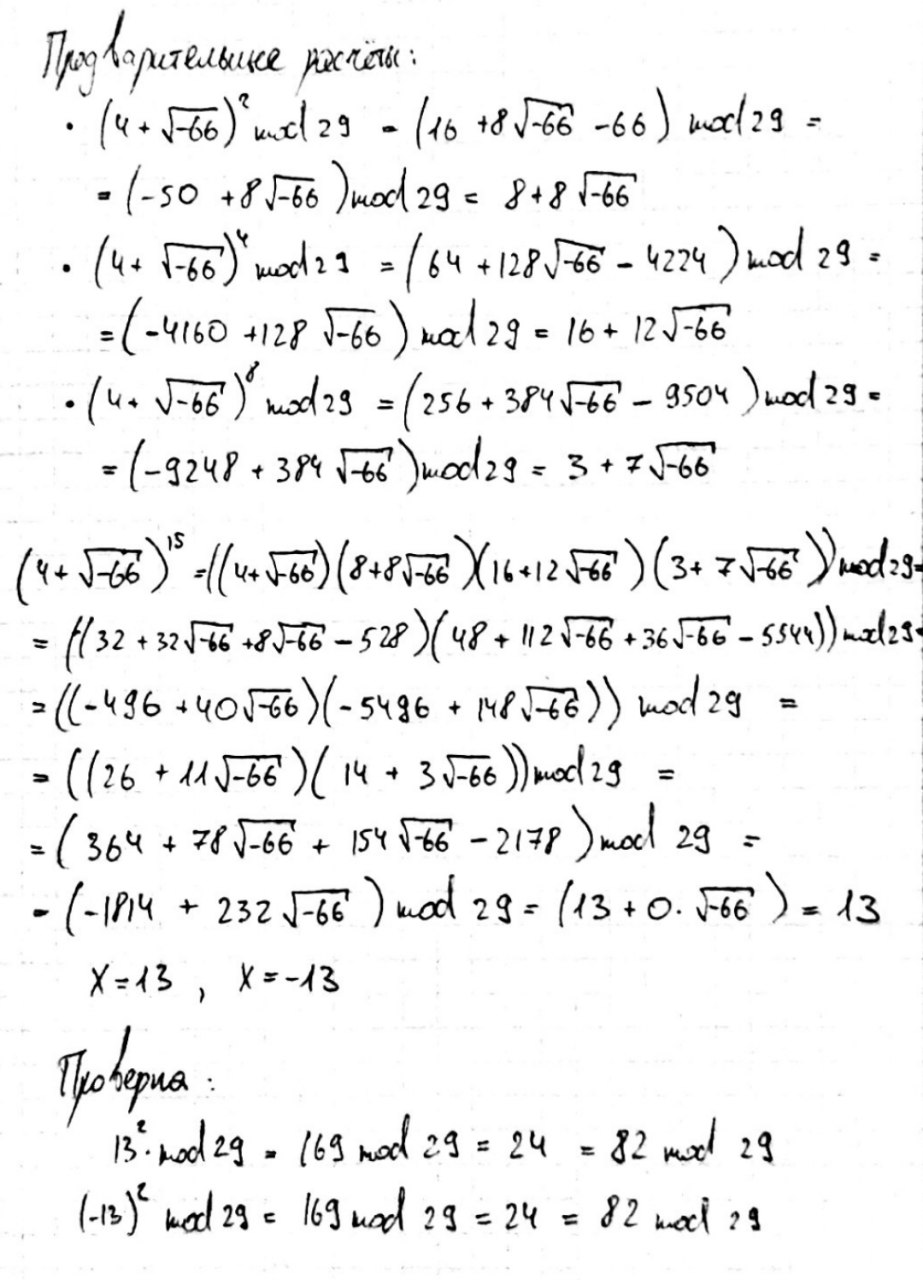 Предварительные расчёты:
• (4 + √-66)² mod 29 = (16 + 8√-66 - 66) mod 29 =
= (-50 + 8√-66) mod 29 = 8 + 8√-66
• (4 + √-66)⁴ mod 29 = (64 + 128√-66 - 4224) mod 29 =
= (-4160 + 128√-66) mod 29 = 16 + 12√-66
• (4 + √-66)⁸ mod 29 = (256 + 384√-66 - 9504) mod 29 =
= (-9248 + 384√-66) mod 29 = 3 + 7√-66
(4 + √-66)¹⁵ = ((4 + √-66)(8 + 8√-66)(16 + 12√-66)(3 + 7√-66)) mod 29 =
= ((32 + 32√-66 + 8√-66 - 528)(48 + 112√-66 + 36√-66 - 5544)) mod 29 =
= ((-496 + 40√-66)(-5496 + 148√-66)) mod 29 =
= ((26 + 11√-66)(14 + 3√-66)) mod 29 =
= (364 + 78√-66 + 154√-66 - 2178) mod 29 =
= (-1814 + 232√-66) mod 29 = (13 + 0·√-66) = 13
X = 13, X = -13
Проверка:
13² mod 29 = 169 mod 29 = 24 = 82 mod 29
(-13)² mod 29 = 169 mod 29 = 24 = 82 mod 29